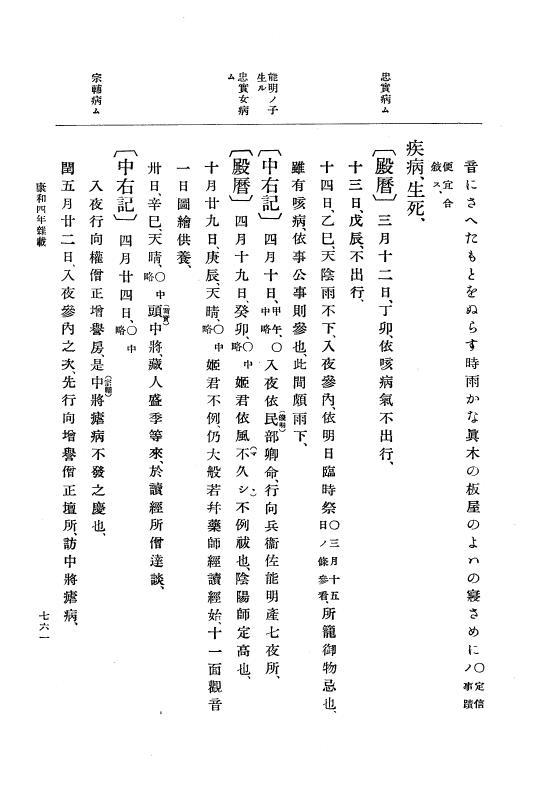 音にさへたもとをぬらす時雨かな眞木の板屋のよハの寝さめに〇定信ノ事蹟
便宜合敍ス、
疾病、生死、
忠實病ム
〔殿暦〕三月十二日、丁卯依咳病氣不出行、
十三日、戊辰、不出行、
十四日、乙巳、天陰雨不下、入夜參内、依明日臨時祭〇三月十五日ノ條參看所籠御物忌也、
雖有咳病、依事公事則參也、此間頗雨下、
能明ノ子生ル
〔中右記〕四月十日、甲午、〇中略入夜依民部卿(俊明)命、行向兵衞佐能明產七夜所、
忠實女病ム
〔殿暦〕四月十九日、癸卯、〇中略姬君依風不久シ(マヽ)不例祓也、陰陽師定高也、
十月廿九日、庚辰、天晴、〇中略姬君不例、仍大般若幷藥師經讀經始、十一面觀音
一日圖繪供養、
卅日、辛巳、天晴、〇中略頭中將、藏人盛季等來、於讀經所僧達談、
宗輔病ム
〔中右記〕四月廿四日、〇中略
入夜行向權僧正增譽房、是中將(宗輔)瘧病不發之慶也、
閏五月廿二日、入夜參內之次、先行向增譽僧正壇所、訪中將瘧病、
康和四年雜載
七六一